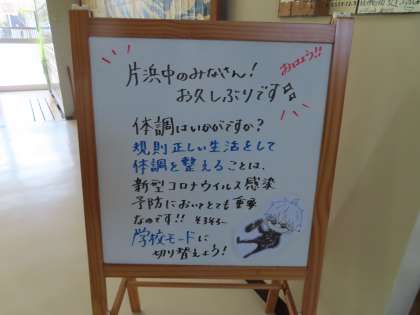 おはよう!!
片浜中のみなさん!
お久しぶりです!!
体調はいかがですか?
規則正しい生活をして
体調を整えることは、
新型コロナウイルス感染
予防においてとても重要
なのです!! そろそろ…
学校モードに
切り替えよう!